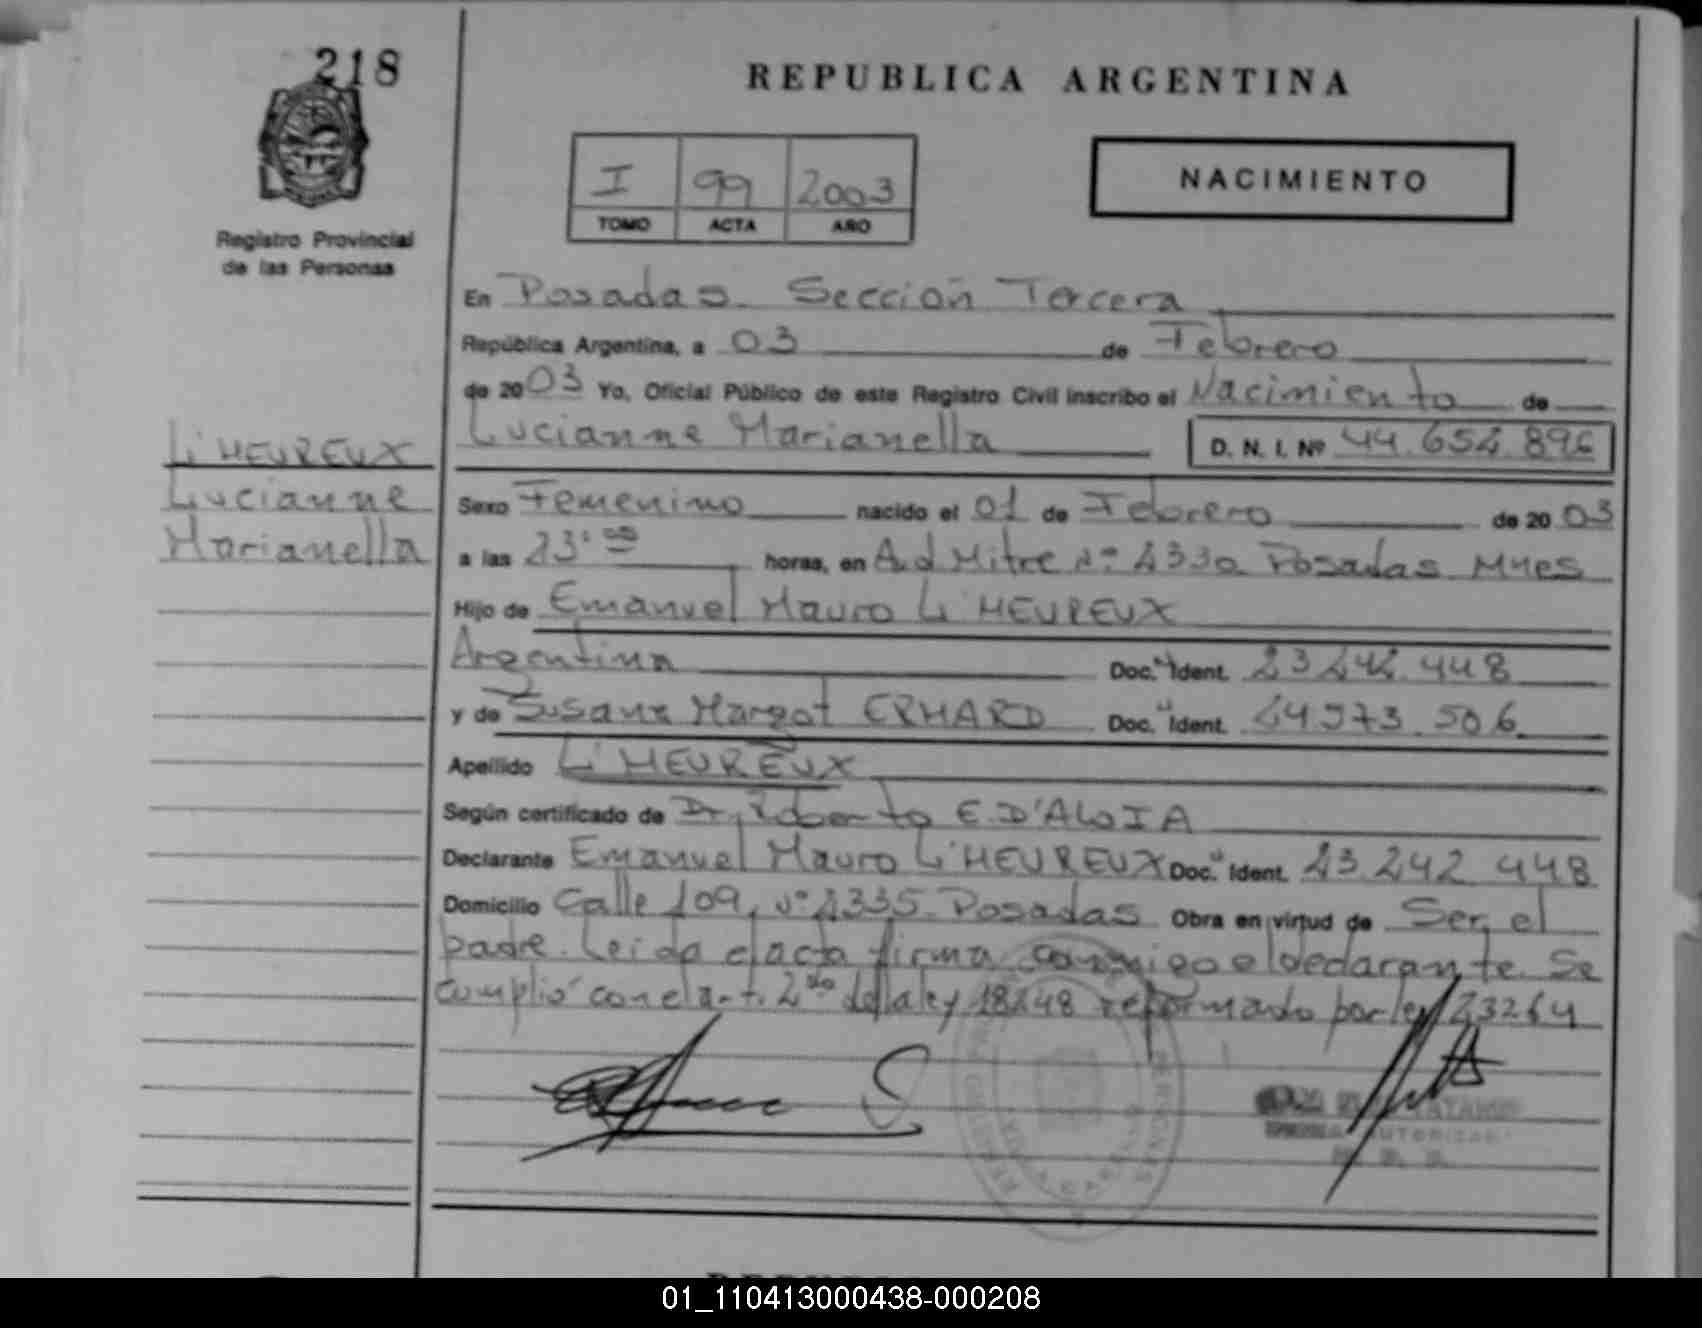 218
REPUBLICA ARGENTINA
I 99 2003
TOMO ACTA AÑO
NACIMIENTO
Registro Provincial
de las Personas
En Posadas. Sección Tercera
República Argentina, a 03 de Febrero
de 2003 Yo, Oficial Público de este Registro Civil inscribo el Nacimiento de
Lucianne Marianella D. N. I. Nº 44.654.896
L'HEUREUX
Lucianne
Marianella
Sexo Femenino nacido el 01 de Febrero de 2003
a las 23:00 horas, en Avd Mitre Nº 2330 Posadas Mnes
Hijo de Emanuel Mauro L'HEUREUX
Argentina Doc. Ident. 23.242.448
y de Susana Margot ERHARD Doc. Ident. 24.973.506
Apellido L'HEUREUX
Según certificado de Dr. Roberto E. D'ALOIA
Declarante Emanuel Mauro L'HEUREUX Doc. Ident. 23.242.448
Domicilio Calle 109, Nº 2335. Posadas Obra en virtud de Ser el
padre. Leida el acta firma conmigo el declarante. Se
cumplió con el art. 2do de la ley 18248 reformado por ley 23264
01_110413000438-000208